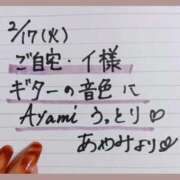 2/17(火)
ご自宅・イ様
ギターの音色に
Ayami うっとり♡
あやみより♡